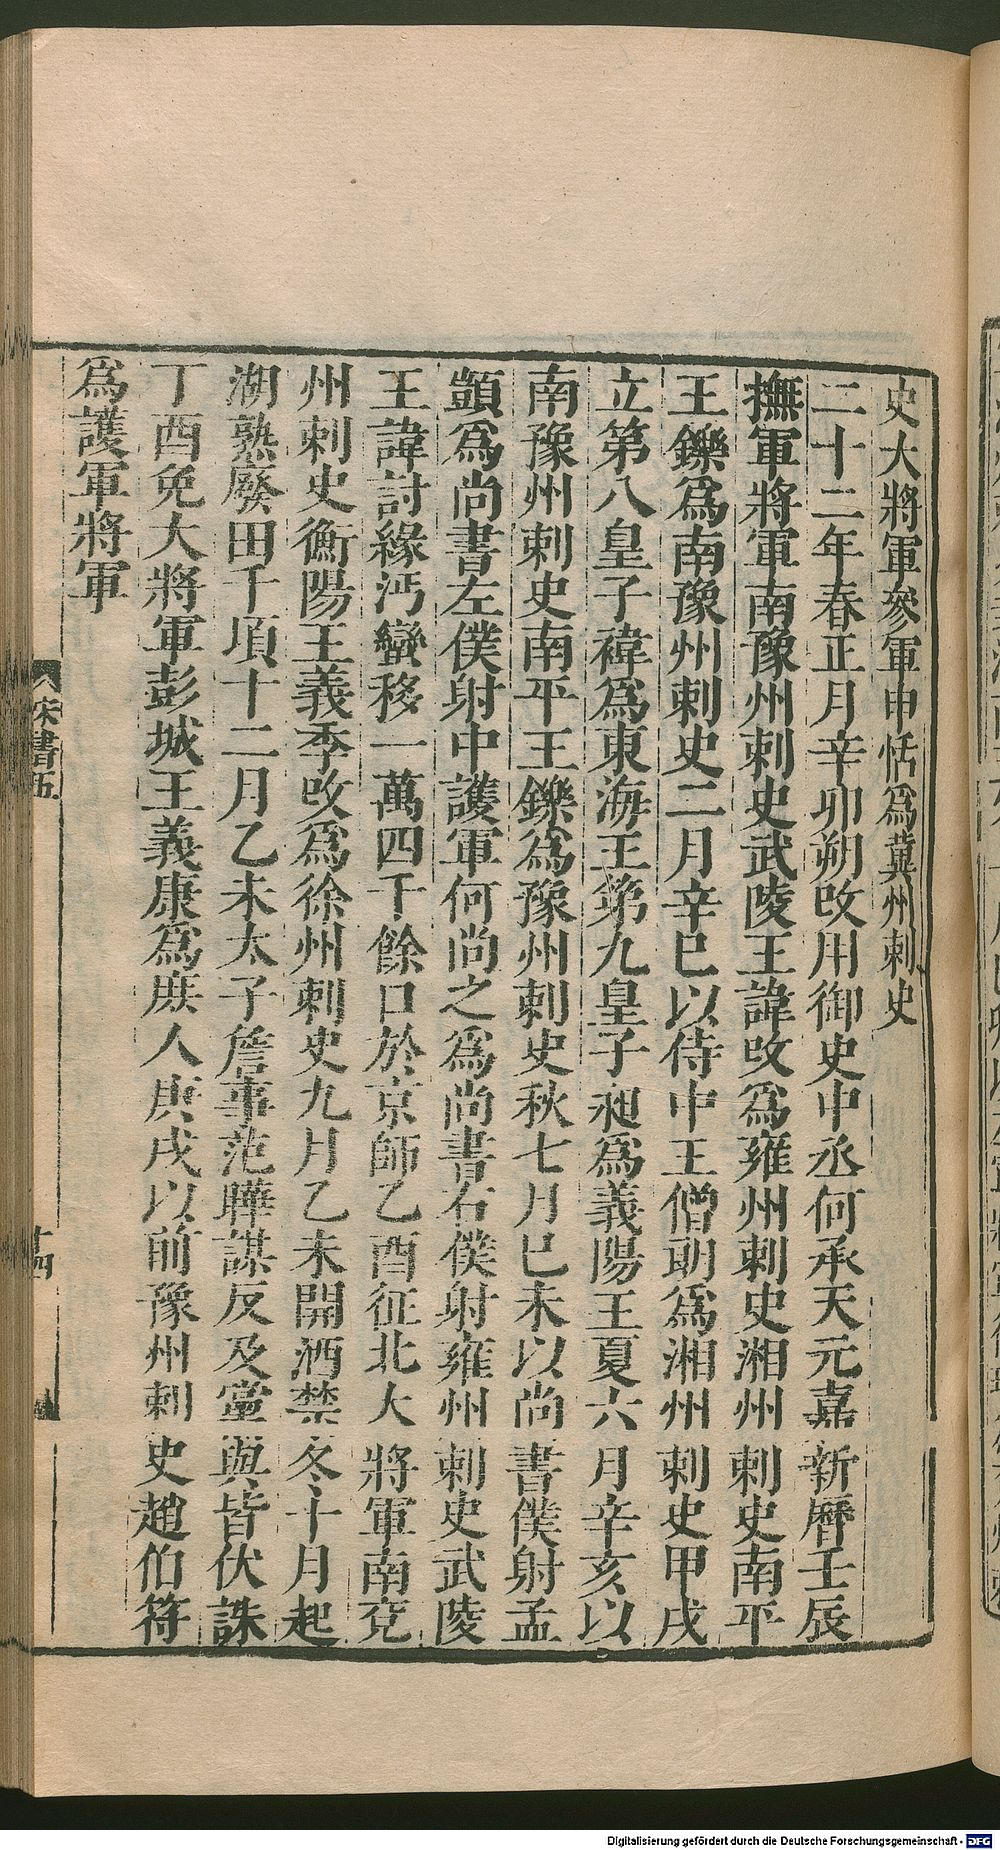 史大將軍參軍申恬爲冀州刺史
二十二年春正月辛卯朔改用御史中丞何承天元嘉新曆壬辰
撫軍將軍南豫州刺史武陵王諱改爲雍州刺史湘州刺史南平
王鑠爲南豫州刺史二月辛巳以侍中王僧朗爲湘州刺史甲戌
立第八皇子禕爲東海王第九皇子昶爲義陽王夏六月辛亥以
南豫州刺史南平王鑠爲豫州刺史秋七月己未以尚書僕射孟
顗爲尚書左僕射中護軍何尚之爲尚書右僕射雍州刺史武陵
王諱討緣沔蠻移一萬四千餘口於京師乙酉征北大將軍南兗
州刺史衡陽王義季改爲徐州刺史九月乙未開酒禁冬十月起
湖熟廢田千項十二月乙未太子詹事范曄謀反及黨與皆伏誅
丁酉免大將軍彭城王義康爲庶人庚戌以前豫州刺史趙伯符
爲護軍將軍
宋書五
十四
Digitalisierung gefördert durch die Deutsche Forschungsgemeinschaft - DFG